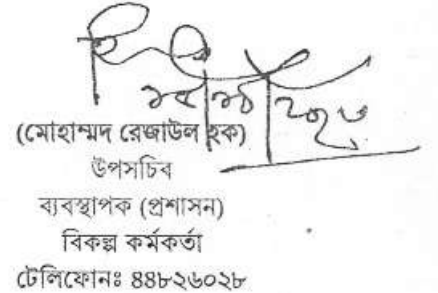 (মোহাম্মদ রেজাউল হক)
উপসচিব
ব্যবস্থাপক (প্রশাসন)
বিকল্প কর্মকর্তা
টেলিফোনঃ ৪৪৮২৬০২৮